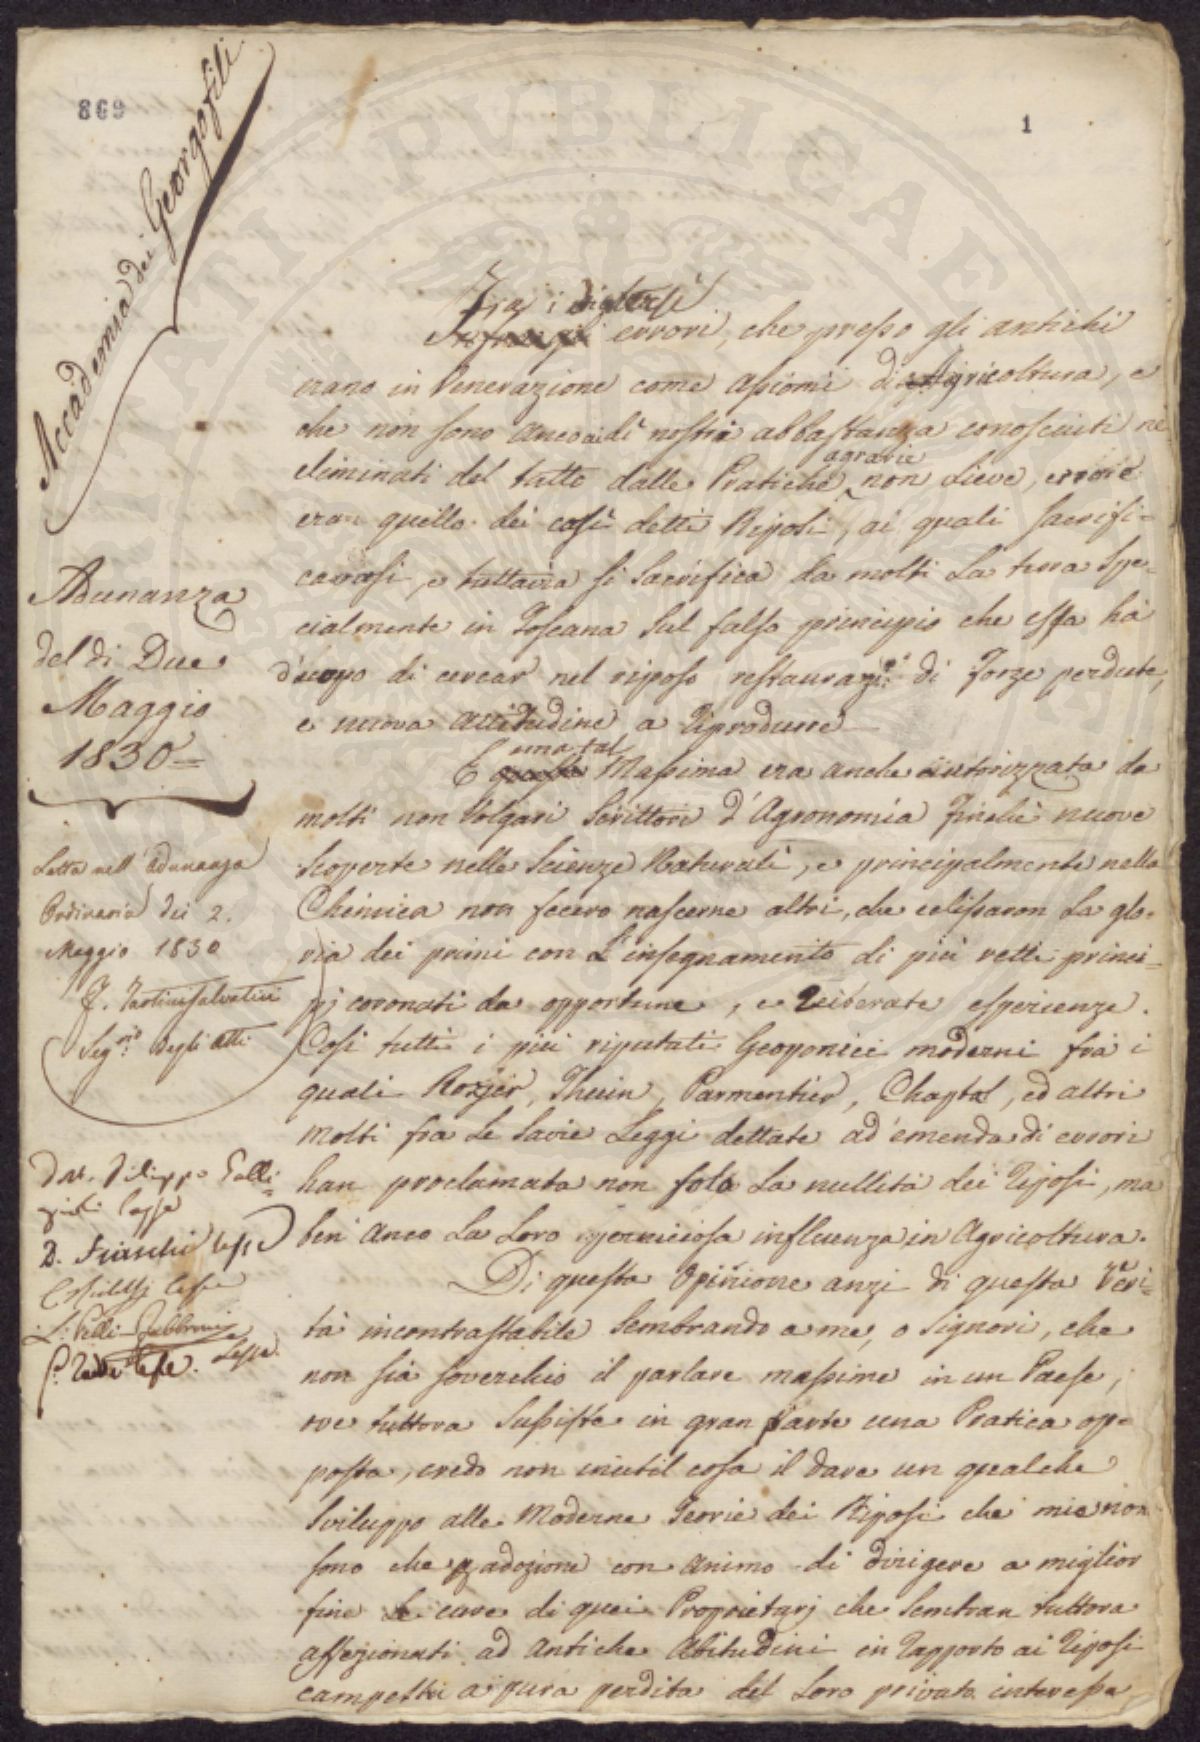 869
1
Accademia dei Georgofili
Adunanza
del di Due
Maggio
1830=
Letta nell'Adunanza
Ordinaria dei 2.
Maggio 1830
Seg.rio degli atti
Fra i
errori, che presso gli antichi
erano in Venerazione come Assiomi di Agricoltura, e
che non sono anco ai dì nostri abbastanza conosciuti nè
agrarie
eliminati del tutto dalle Pratiche non Lieve, errore
era quello dei così detti Riposi, ai quali sacrifi=
cavasi, e tuttavia si sacrifica da molti La terra Spe=
cialmente in Toscana Sul falso principio che essa hà
d'uopo di cercar nel riposo di forze perdute,
e nuova attitudine a riprodurre
una tal
E Massima era anche autorizzata da
molti non Volgari Scrittori d'Agronomia finchè nuove
Scoperte nelle Scienze Naturali, e principalmente nella
Chimica non fecero nascerne altri, che eclissaron La glo=
ria dei primi con L'insegnamento di più retti princi=
pj coronati da opportune, e reiterate esperienze.
Così tutti i più riputati Geoponici moderni frà i
quali Rozier, Parmentier, Chaptal, ed altri
molti fra Le Savie Leggi dettate ad emenda di errori
han proclamata non solo La nullità dei riposi, ma
ben anco La Loro perniciosa influenza in Agricoltura.
Di questa Opinione anzi di questa Veri=
tà incontrastabile Sembrando a me, o Signori, che
non sia soverchio il parlare massime in un Paese,
ove tuttora Sussiste in gran parte una Pratica op=
posta, credo non inutil cosa il dare un qualche
Sviluppo alle Moderne Teorie dei Riposi che mie non
sono che adozione con animo di dirigere a miglior
fine Le cure di quei Proprietarj che Sembran tuttora
affezionati ad antiche Abitudini in rapporto ai riposi
campestri a pura perdita del Loro privato interesse
Dot. Filippo Galli=
D. Fiaschi lesse
lesse
L. Pelli-Fabbroni
Lesse.
lesse.